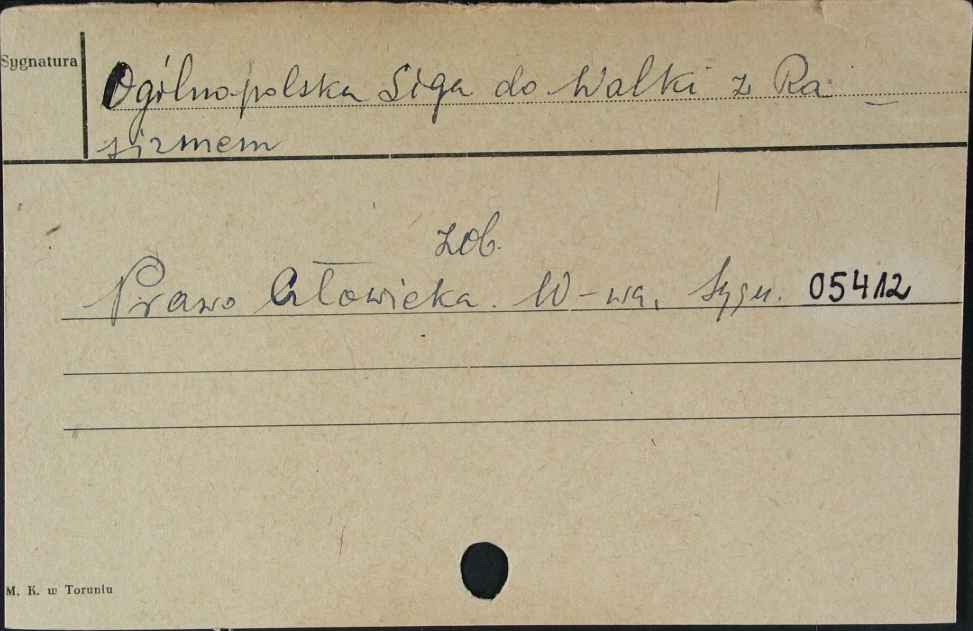 Sygnatura
Ogólnopolska Liga do Walki z Ra-
sizmem
zob.
Prawo Człowieka. W-wa, Sygn. 05412
M. K. w Toruniu